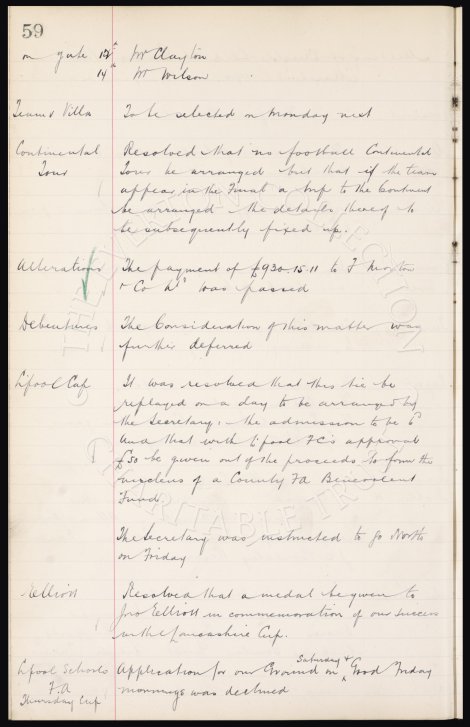 59
on gate 12th Mr Clayton
14th Mr Wilson
Team v Villa To be selected on Monday next
Continental Resolved that no football Continental
Tour Tour be arranged but that if the team
appear in the Final a trip to the Continent
be arranged the details thereof to
be subsequently fixed up.
Alterations The payment of £930.15.11 to F
& Co Ld was passed
Debentures The Consideration of this matter was
further deferred
L'pool Cup It was resolved that this tie be
replayed on a day to be arranged by
the Secretary: the admission to be 6d
and that with L'pool FC's approval
£50 be given out of the proceeds to form the
nucleus of a County FA Benevolent
Fund.
The Secretary was instructed to go North
on Friday
Elliott Resolved that a medal be given to
Jno Elliott in commemoration of our success
in the Lancashire Cup.
Saturday &
L'pool Schools Application for our Ground on Good Friday
F.A mornings was declined
Thursday Cup
THE EVERTON COLLECTION
CHARITABLE TRUST